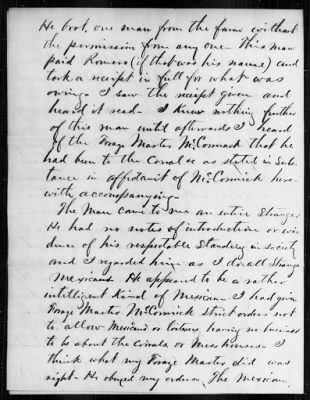 He took one man from the farm without
the permission from any one - This man
paid Romero (if that was his name) and
took a receipt in full for what was
owing - I saw the receipt given and
heard it read - I knew nothing further
of this man until afterwards I heard
of the Forage Master McCormack that he
had been to the Corral &c as stated in Sub-
stance in affidavit of McCormick here-
with accompanying -
The Man came to me an entire Stranger
He had no notes of introduction or evi-
dence of his respectable Standing in society
and I regarded him as I do all Strange
Mexicans. He appeared to be a rather
intelligent Kind of Mexican - I had given
Forage Master McCormick strict orders not
to allow Mexicans or others having no business
to be about the corrals or Mess houses - I
think what my Forage Master did was
right - He obeyed my orders. The Mexican